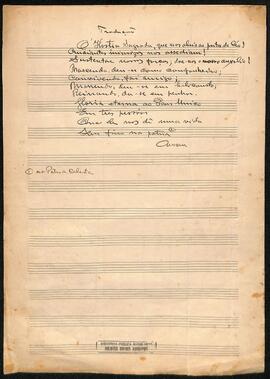 Tradução
O Hostia Sagrada, que nos abris as portas do Céo!
inimigos nos assediam!
Sustentae nossas forças, dae-nos o vosso auxilio!
Nascendo, deu-se como companheiro;
Convivendo, foi
Morrendo, deu-se em
Reinando, dá-se em premio.
Gloria eterna ao Deus Unico
Em tres pessoas
Que Elle nos dê uma vida
Sem fim na patria
Amen
O na Patria Celeste